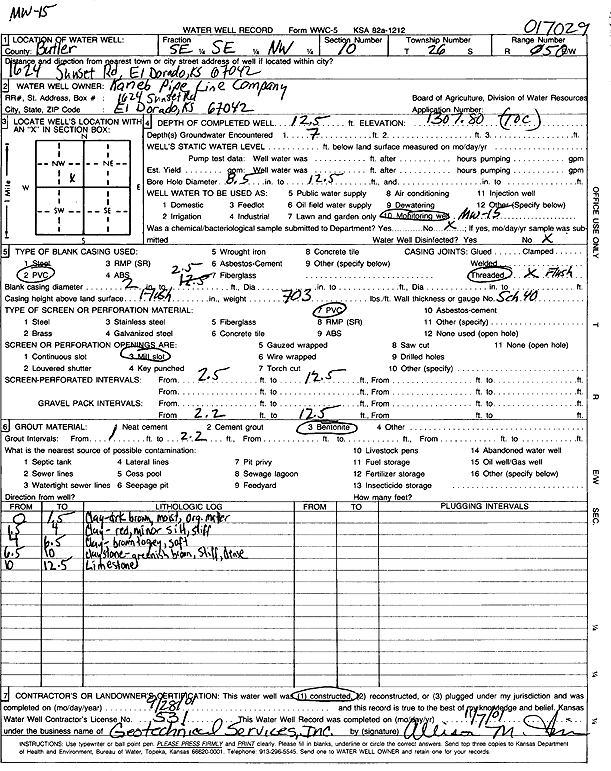 MW-15
017029
WATER WELL RECORD Form WWC-5 KSA 82a-1212
1 LOCATION OF WATER WELL: Fraction Section Number Township Number Range Number
County: Butler SE ¼ SE ¼ NW ¼ 10 T 26 S R 05
Distance and direction from nearest town or city street address of well if located within city?
1624 Sunset Rd, El Dorado, KS 67042
2 WATER WELL OWNER: Kaneb Pipe Line Company
RR#, St. Address, Box # : 1624 Sunset Rd Board of Agriculture, Division of Water Resources
City, State, ZIP Code : El Dorado, KS 67042 Application Number:
3 LOCATE WELL'S LOCATION WITH AN "X" IN SECTION BOX:
N
NW NE
X
W E
SW SE
S
1 Mile
4 DEPTH OF COMPLETED WELL 12.5 ft. ELEVATION: 1307.80 (TOC)
Depth(s) Groundwater Encountered 1. 7 ft. 2. ft. 3. ft.
WELL'S STATIC WATER LEVEL ft. below land surface measured on mo/day/yr
Pump test data: Well water was ft. after hours pumping gpm
Est. Yield gpm: Well water was ft. after hours pumping gpm
Bore Hole Diameter 8.5 in. to 12.5 ft., and in. to ft.
WELL WATER TO BE USED AS: 5 Public water supply 8 Air conditioning 11 Injection well
1 Domestic 3 Feedlot 6 Oil field water supply 9 Dewatering 12 Other (Specify below)
2 Irrigation 4 Industrial 7 Lawn and garden only 10 Monitoring well MW-15
Was a chemical/bacteriological sample submitted to Department? Yes No X ; If yes, mo/day/yr sample was submitted
Water Well Disinfected? Yes No X
5 TYPE OF BLANK CASING USED: 5 Wrought iron 8 Concrete tile CASING JOINTS: Glued Clamped
1 Steel 3 RMP (SR) 6 Asbestos-Cement 9 Other (specify below) Welded
2 PVC 4 ABS 7 Fiberglass Threaded X Flush
Blank casing diameter 2 in. to 12.5 2.5 ft., Dia in. to ft., Dia in. to ft.
Casing height above land surface Flush in., weight .703 lbs./ft. Wall thickness or gauge No. Sch. 40
TYPE OF SCREEN OR PERFORATION MATERIAL: 7 PVC 10 Asbestos-cement
1 Steel 3 Stainless steel 5 Fiberglass 8 RMP (SR) 11 Other (specify)
2 Brass 4 Galvanized steel 6 Concrete tile 9 ABS 12 None used (open hole)
SCREEN OR PERFORATION OPENINGS ARE: 5 Gauzed wrapped 8 Saw cut 11 None (open hole)
1 Continuous slot 3 Mill slot 6 Wire wrapped 9 Drilled holes
2 Louvered shutter 4 Key punched 7 Torch cut 10 Other (specify)
SCREEN-PERFORATED INTERVALS: From 2.5 ft. to 12.5 ft., From ft. to ft.
From ft. to ft., From ft. to ft.
GRAVEL PACK INTERVALS: From 2.2 ft. to 12.5 ft., From ft. to ft.
From ft. to ft., From ft. to ft.
6 GROUT MATERIAL: 1 Neat cement 2 Cement grout 3 Bentonite 4 Other
Grout Intervals: From 1 ft. to 2.2 ft., From ft. to ft., From ft. to ft.
What is the nearest source of possible contamination: 10 Livestock pens 14 Abandoned water well
1 Septic tank 4 Lateral lines 7 Pit privy 11 Fuel storage 15 Oil well/Gas well
2 Sewer lines 5 Cess pool 8 Sewage lagoon 12 Fertilizer storage 16 Other (specify below)
3 Watertight sewer lines 6 Seepage pit 9 Feedyard 13 Insecticide storage
Direction from well? How many feet?
FROM TO LITHOLOGIC LOG FROM TO PLUGGING INTERVALS
0 1.5 Clay-dark brown, moist, org. matter
1.5 4 Clay - red, minor silt, stiff
4 6.5 Clay - brown to gey, soft
6.5 10 Claystone-greenish brown, stiff, dense
10 12.5 Limestone
7 CONTRACTOR'S OR LANDOWNER'S CERTIFICATION: This water well was (1) constructed, (2) reconstructed, or (3) plugged under my jurisdiction and was
completed on (mo/day/year) 9/28/01 and this record is true to the best of my knowledge and belief. Kansas
Water Well Contractor's License No. 531 This Water Well Record was completed on (mo/day/yr) 11/7/01
under the business name of Geotechnical Services, Inc. by (signature) Allison M.
INSTRUCTIONS: Use typewriter or ball point pen. PLEASE PRESS FIRMLY and PRINT clearly. Please fill in blanks, underline or circle the correct answers. Send top three copies to Kansas Department
of Health and Environment, Bureau of Water, Topeka, Kansas 66620-0001. Telephone: 913-296-5545. Send one to WATER WELL OWNER and retain one for your records.
OFFICE USE ONLY
T
R
E/W
SEC.
¼
¼
¼